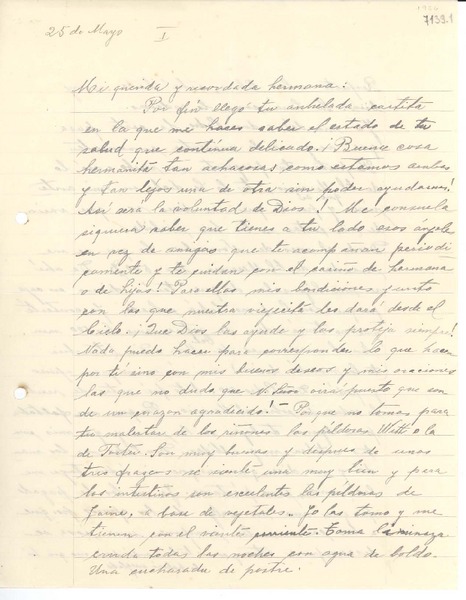 1936
7139.1
25 de Mayo I
Mi querida y recordada hermana:
Por fín llegó tu anhelada cartita
en la que me haces saber el estado de tu
salud que continúa delicado. ¡Buena cosa
hermanita tan achacosas como estamos ambas
y tan lejos una de otra sin poder ayudarnos!
Así será la voluntad de Dios! Me consuela
siquiera saber que tienes a tu lado esos ángeles
en vez de amigas que te acompañan periodi
camente y te cuidan con el cariño de hermana
o de hijas! Para ellas mis bendiciones junto
con las que nuestra viejecita les dará desde el
Cielo. ¡Que Dios las ayude y las proteja siempre!
Nada puedo hacer para corresponder lo que hacen
por tí sino con mis buenos deseos y mis oraciones
las que no dudo que N. Señor oirá puesto que son
de un corazon agradecido! - Porque no tomas para
tu malestar de los riñones las píldoras Witt o la
de Foster. Son muy buenas y despues de unos
tres frascos se siente una muy bien y para
los intestinos son excelentes las píldoras de
Jaine, a base de vegetales. Yo las tomo y me
tienen con el vientre corriente. Toma linaza
cruda todas las noches con agua de boldo.
Una cucharada de postre.